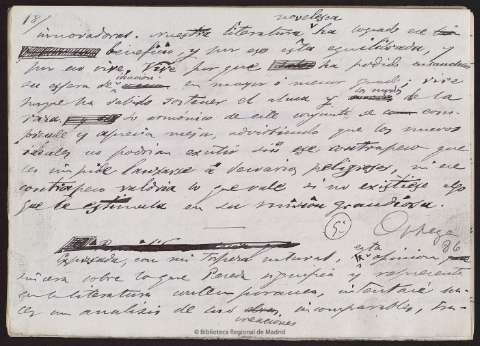 18/
novelesca
innovadoras. Nuestra literatura ha logrado
beneficio, y por eso esta equilibrada, y
por eso vive. Vive porque ha podido
su esfera de en mayor ó menor grado; vive
porque ha sabido sostener el alma y los nervios de la
raza. lo armónico de este conjunto
prende y aprecia mejor, advirtiendo que los nuevos
ideales no podrían existir sin ese contrapeso que
les impide lanzarse a desvarios peligrosos, ni ese
contrapeso valdria lo que vale si no existiese algo
que le estimula en su misión grandiosa.
Ortega
5
86
Expresada, con mi tosquera natural, esta opinión
sincera sobre lo que Pereda significa y representa
en la literatura contemporanea, intentaré ha-
cer un analisis de sus incomparables,
creaciones
© Biblioteca Regional de Madrid